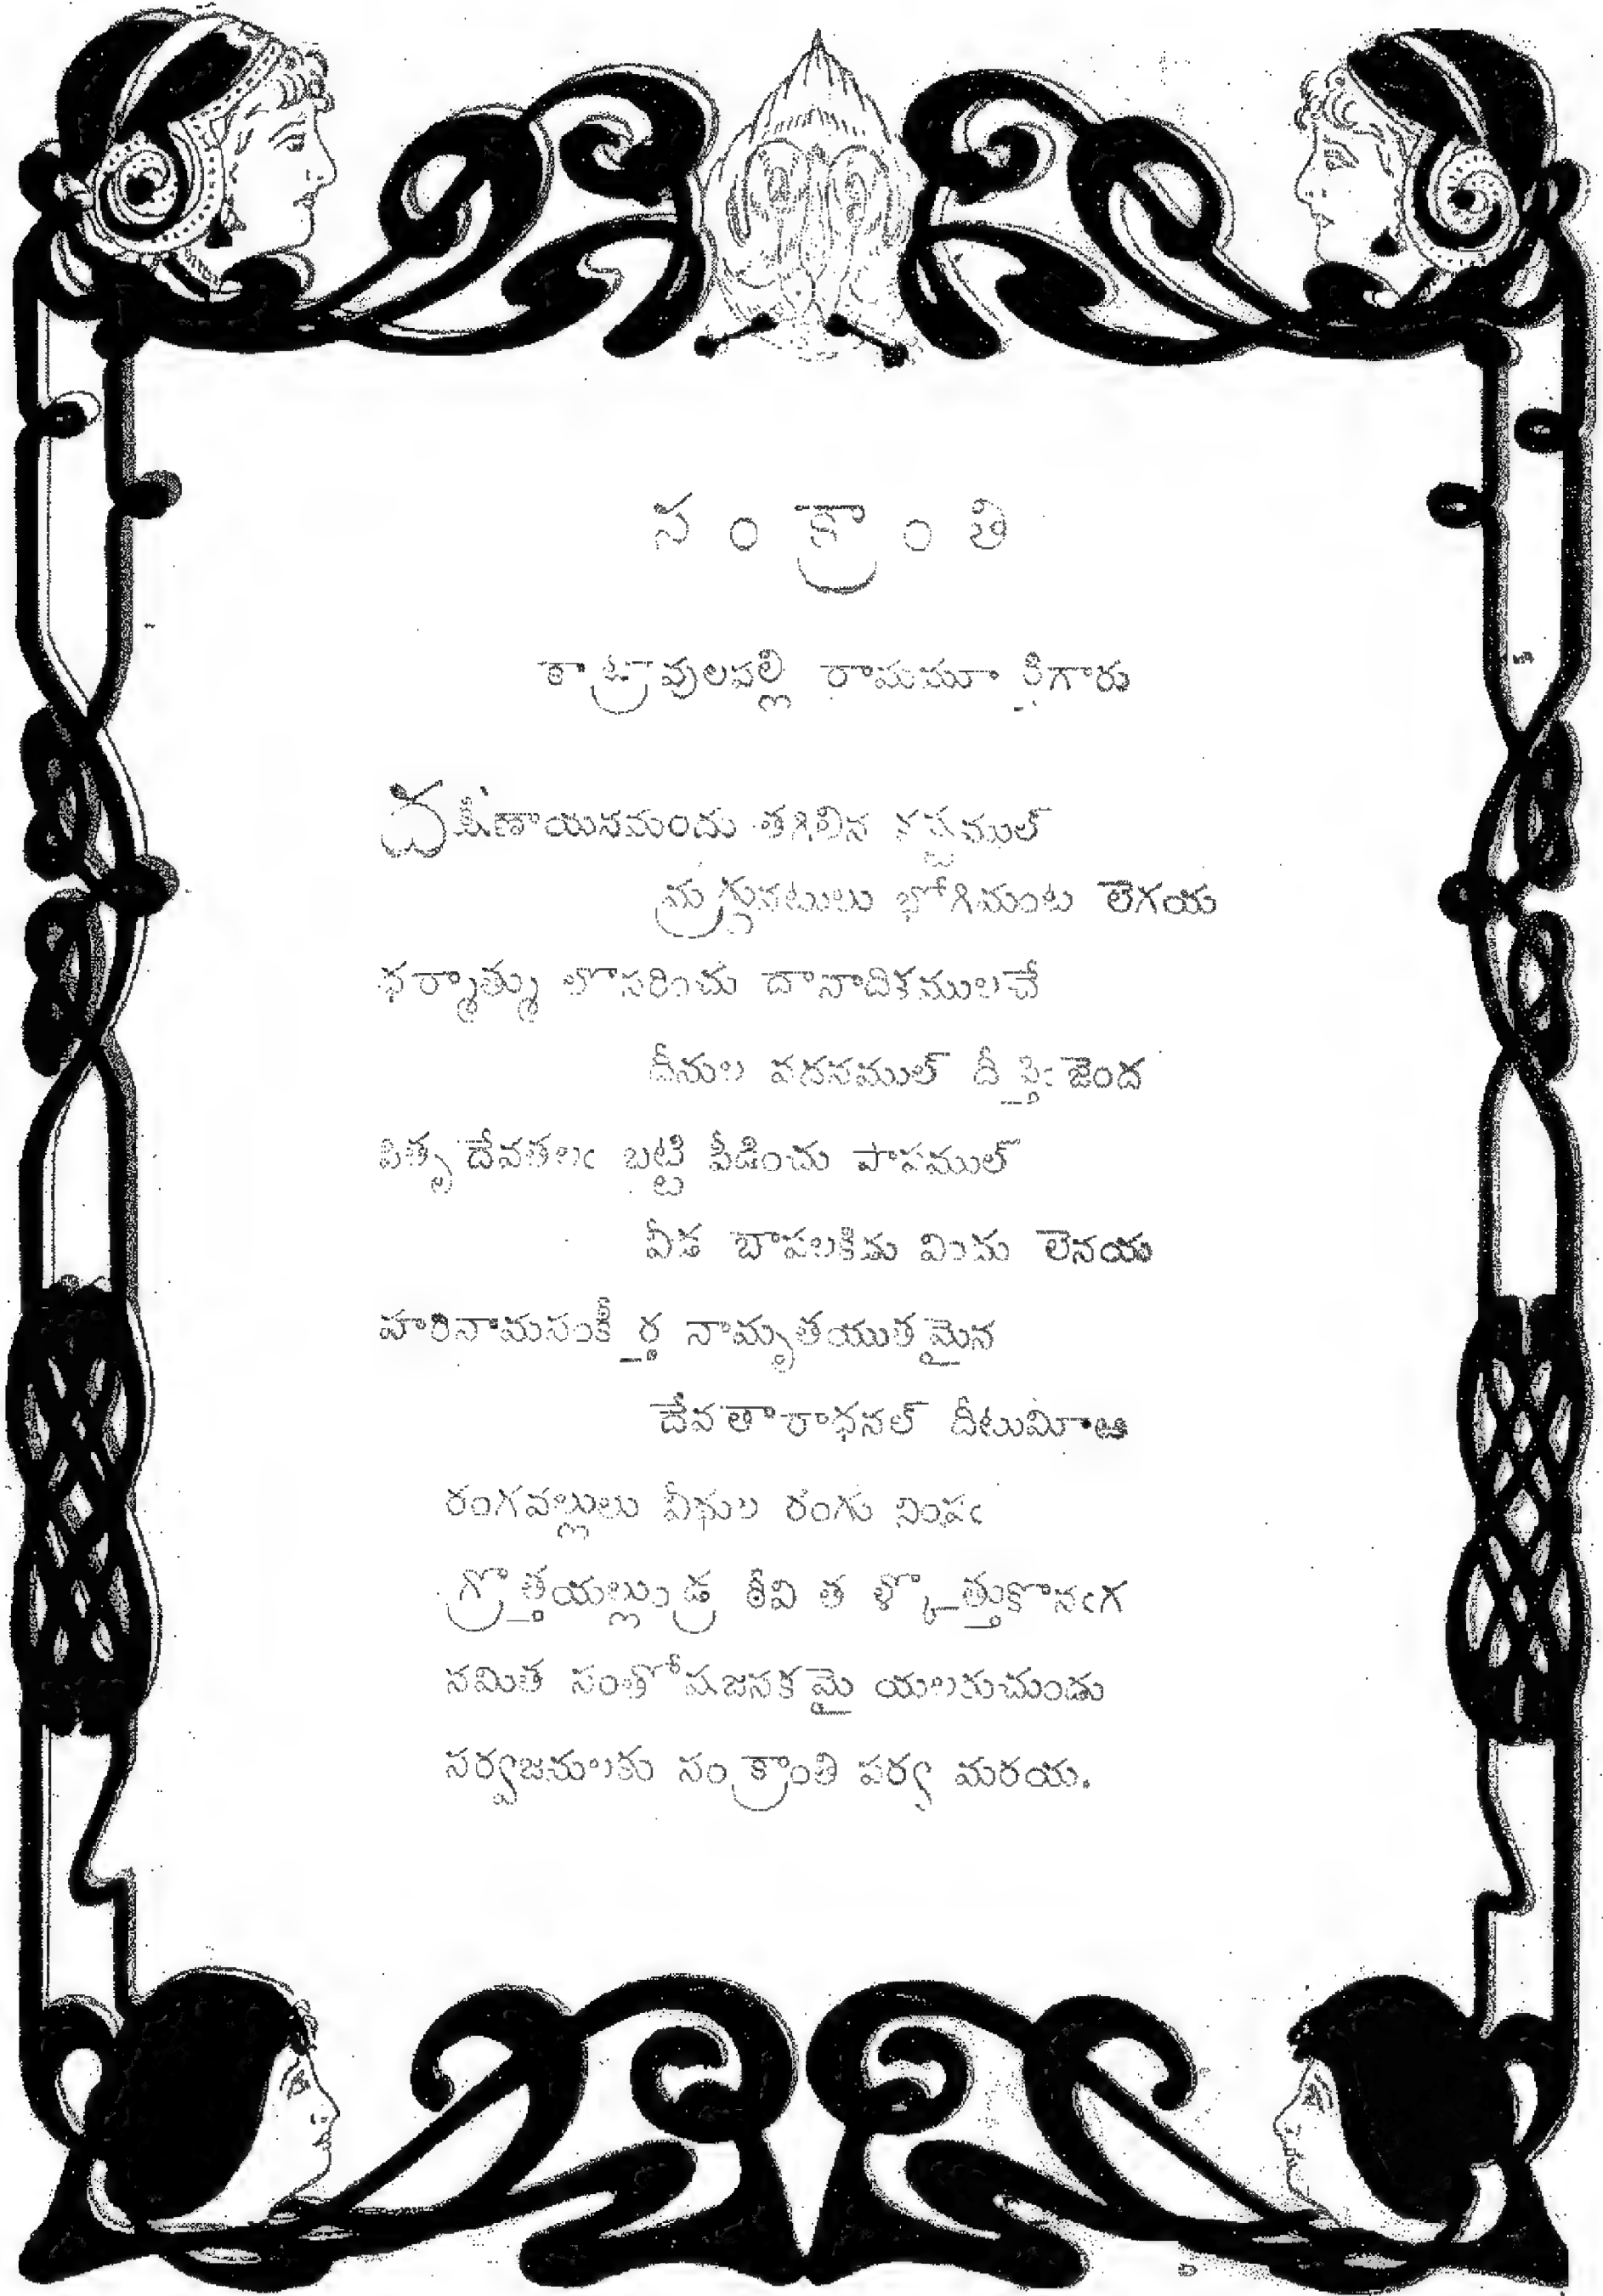 సంక్రాంతి
కాట్రావులపల్లి రామమూర్తిగారు
దక్షిణాయినమందు తగిలిన కష్టముల్
మ్రగ్గునటులు భోగిమంట లెగయ
ధర్మాత్ము లొసరించు దానాదికములచే
దీనుల వదనముల్ దీప్తిఁ జెంద
పితృదేవతలఁ బట్టి పీడించు పాపముల్
వీడ బాపలకిడు విందు లెనయ
హరినామసంకీర్త నామృతయుతమైన
దేవతారాధనల్ దీటుమీఱ
రంగవల్లులు వీథుల రంగు నింపఁ
గ్రొత్తయల్లుండ్ర ఠీవి తళ్కొత్తుకొనఁగ
నమిత సంతోషజనకమై యలరుచుండు
సర్వజనులకు సంక్రాంతి పర్వ మరయ.